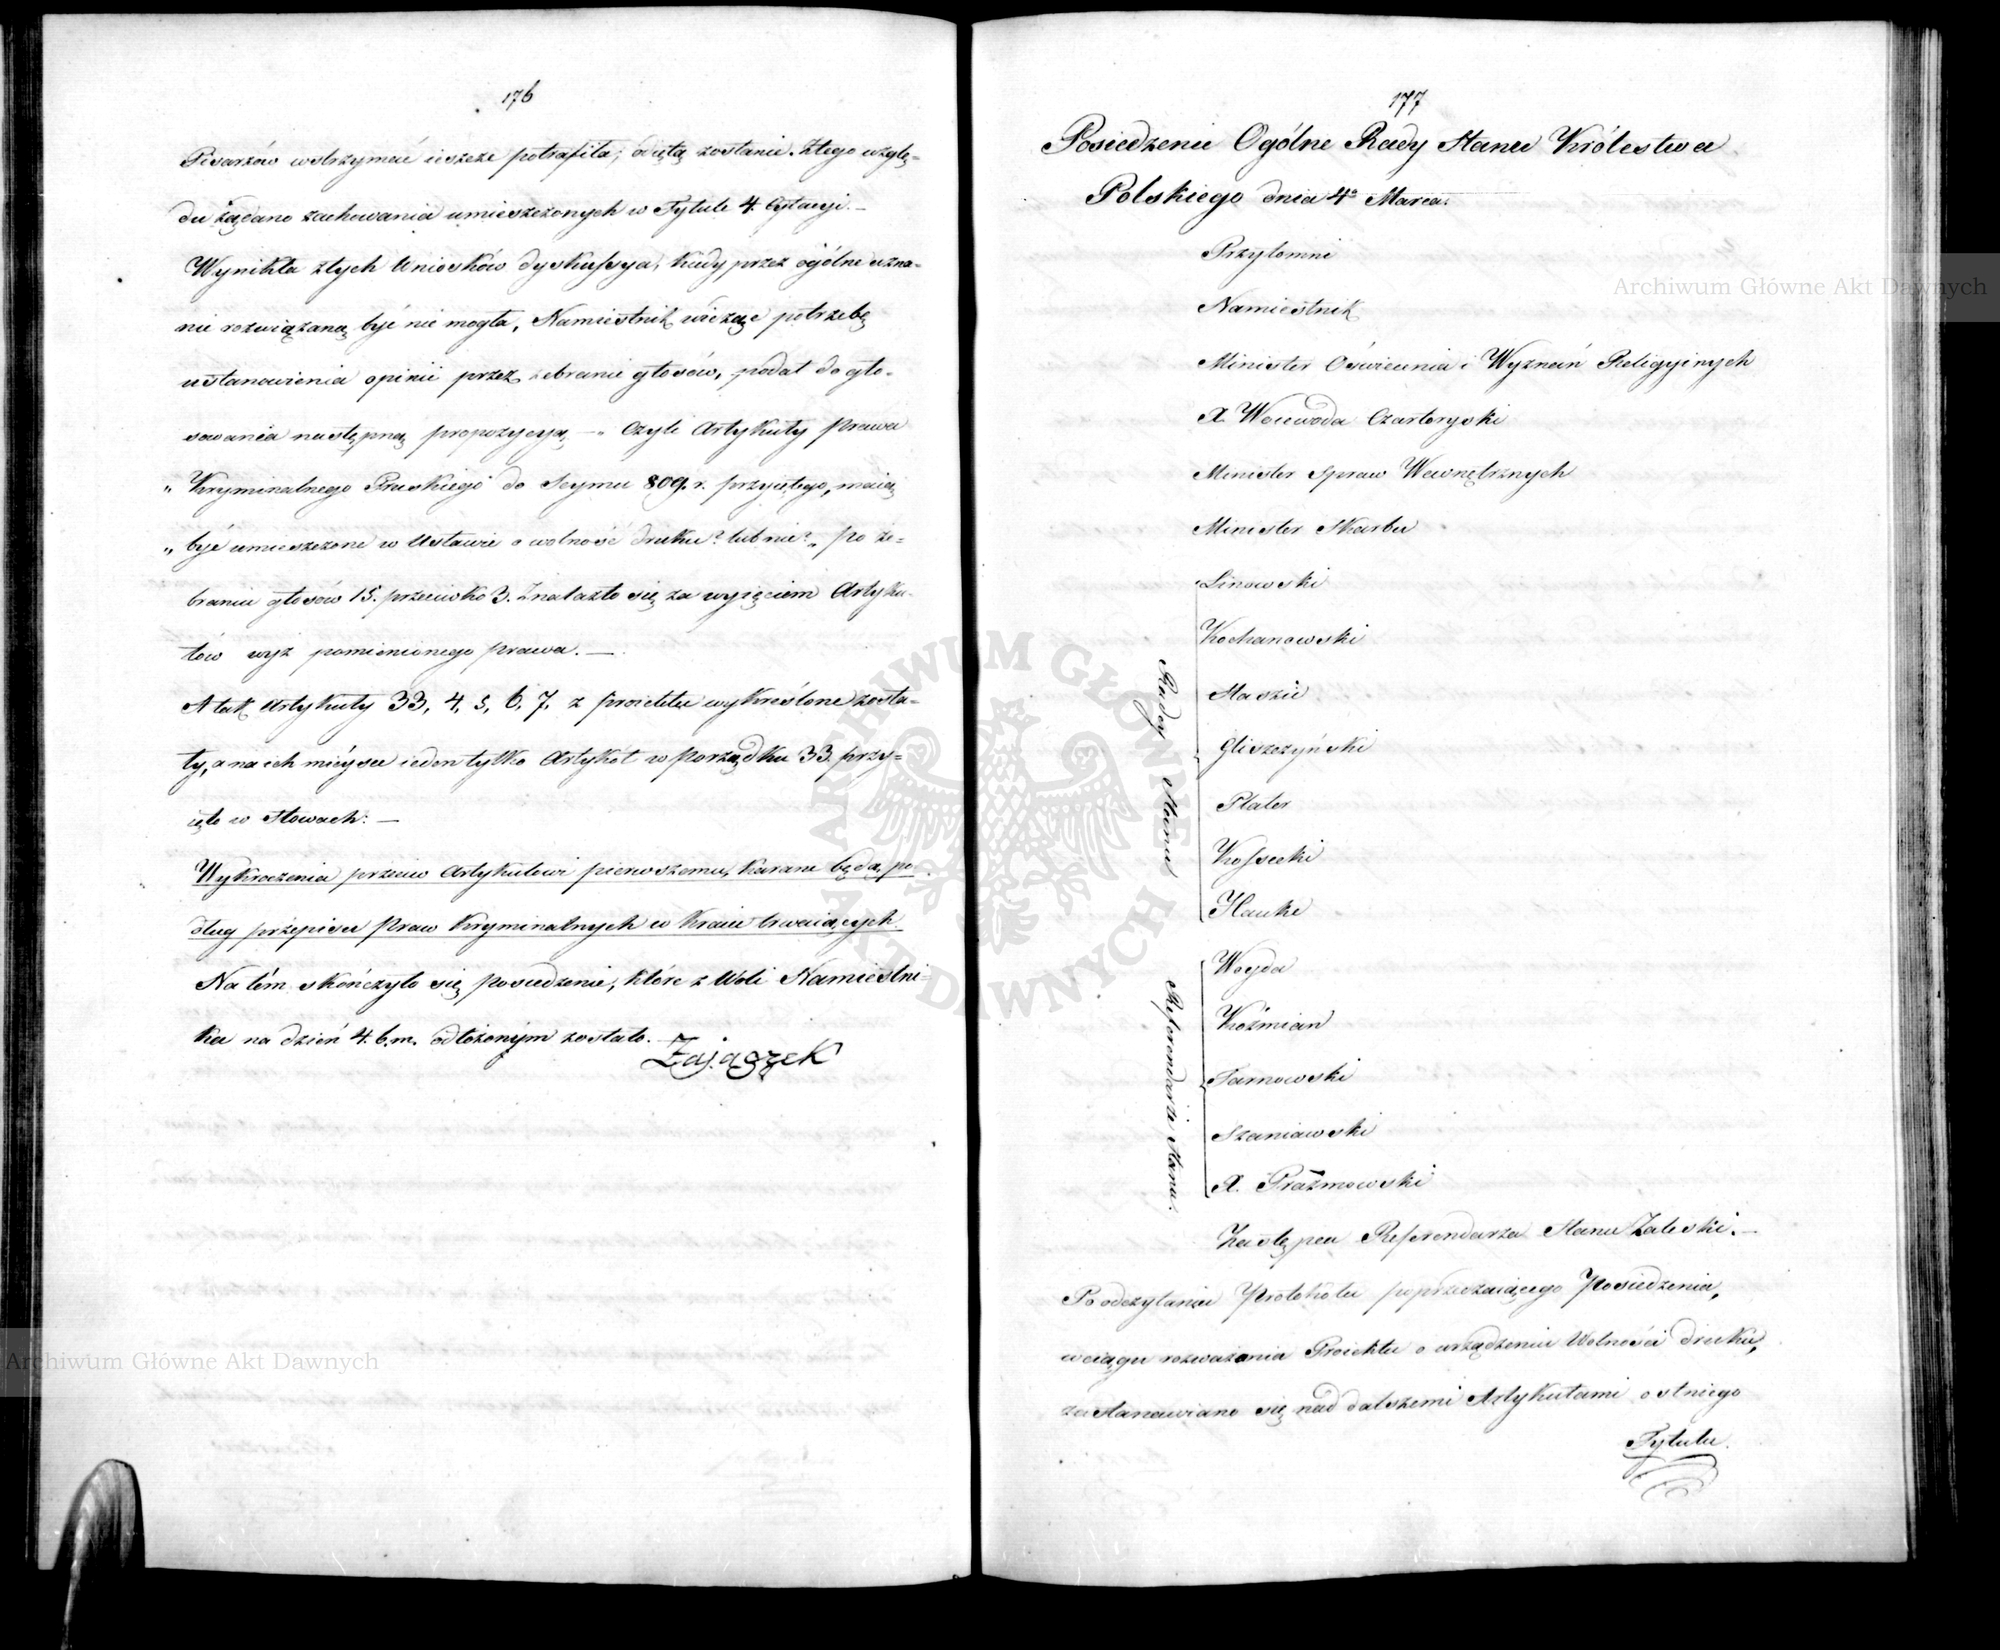 176
Pisarzów wstrzymać ieszcze potrafiła; odiętą zostanie. Ztego wzglę-
du żądano zachowania umieszczonych w Tytule 4. Cytacyi. —
Wynikła ztych Wniosków dyskussya, kiedy przez ogólne uzna-
nie rozwiązaną być nie mogła, Namiestnik widząc potrzebę
ustanowienia opinii przez zebranie głosów, podał do gło-
sowania następną propozycyą, — „ Czyli Artykuły Prawa
„ Kryminalnego Pruskiego do Seymu 809. r. przyiętego, maią
„ być umieszczone w Ustawie o wolność druku? lub nie? „ po ze-
braniu głosów 15. przeciwko 3. Znalazło się za wyięciem Artyku-
łów wyż pomienionego prawa. —
A tak Artykuły 33, 4, 5, 6, 7. z proiektu wykreślone zosta-
ły, a na ich mieysce ieden tylko Artykół w porządku 33. przy-
ięto w słowach: —
Wykroczenia przeciw Artykułowi pierwszemu, karane będą, po-
dług przepisu Praw Kryminalnych w Kraiu trwaiących.
Na tém skończyło się posiedzenie, które z Woli Namiestni-
ka na dzień 4. b. m. odłożonym zostało.
Zajączek
177
Posiedzenie Ogólne Rady Stanu Królestwa
Polskiego dnia 4º Marca.
Przytomni
Namiestnik
Minister Oświecenia i Wyznań Religyinych
X. Woiewoda Czartoryski
Minister Spraw Wewnętrznych
Minister Skarbu
Radcy Stanu
Linowski
Kochanowski
Staszic
Gliszczyński
Plater
Kossecki
Hauke
Referendarze Stanu.
Woyda
Koźmian
Tarnowski
Szaniawski
X. Prażmowski
Zastępca Referendarza Stanu Zaleski. —
Po odczytaniu Protokołu poprzedzaiącego Posiedzenia,
w ciągu rozważania Proiektu o urządzeniu Wolności druku,
zastanawiano się nad dalszemi Artykułami ostniego
Tytułu.
Archiwum Główne Akt Dawnych
Archiwum Główne Akt Dawnych
ARCHIWUM GŁÓWNE AKT DAWNYCH